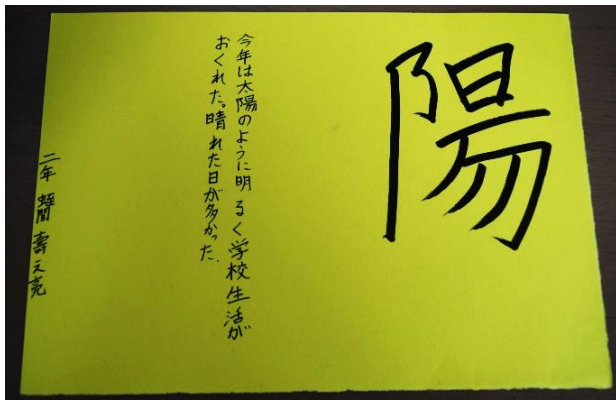 陽
今年は太陽のように明るく学校生活が
おくれた。晴れた日が多かった.
二年 蛭間 壽之亮